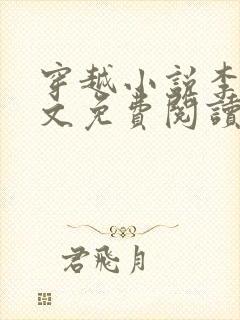 穿越小説李
文免費閱讀
君飛月